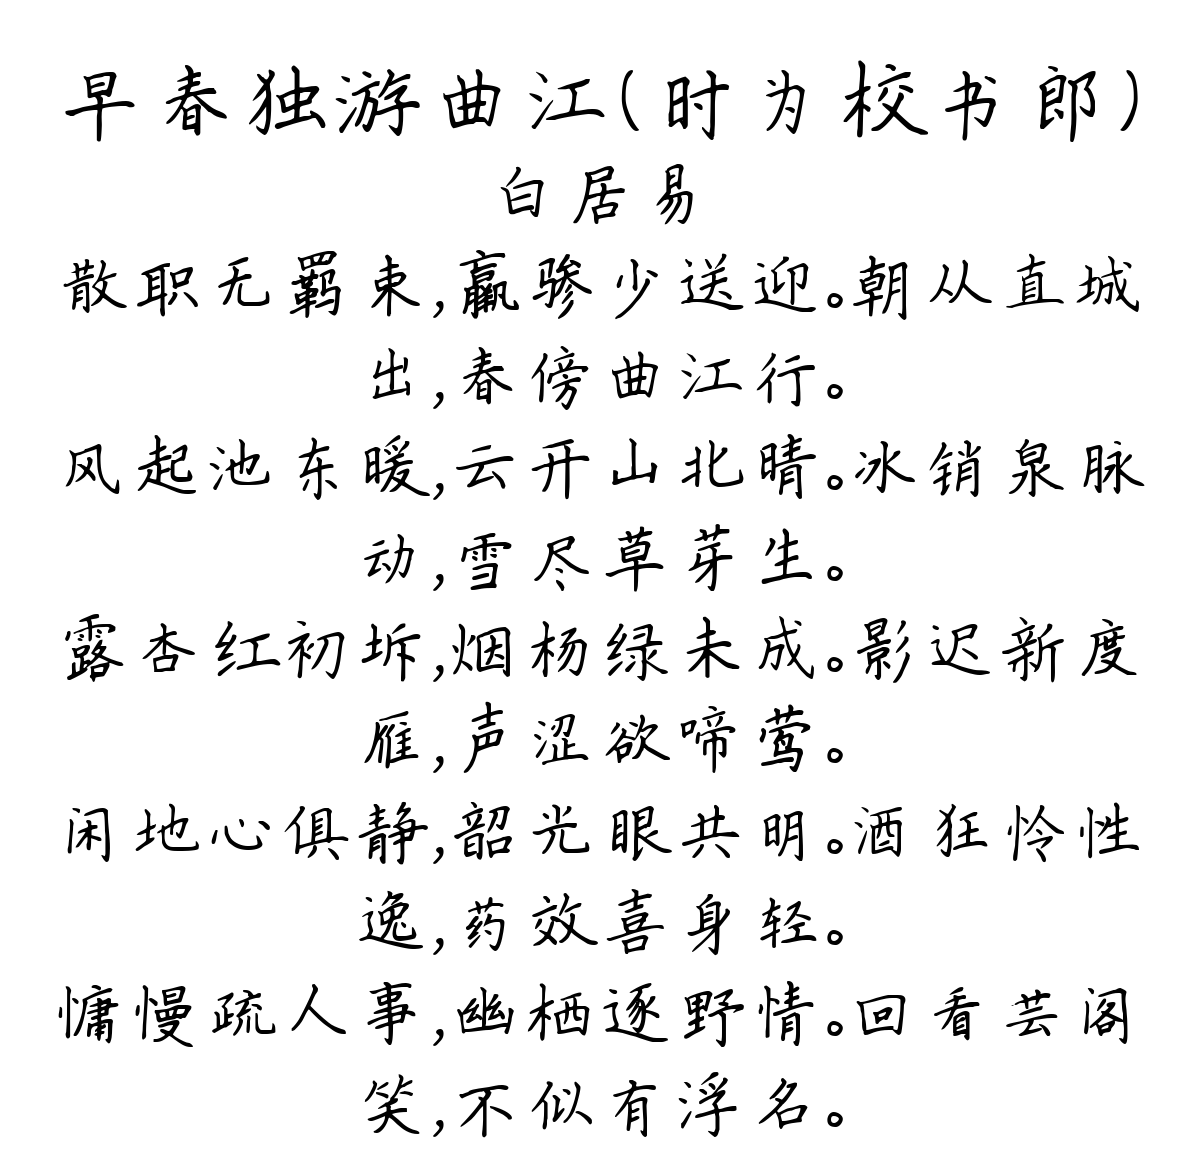 早春独游曲江(时为校书郎)
白居易
散职无羁束,赢骖少送迎。朝从直城
出,春傍曲江行。
风起池东暖,云开山北晴。冰销泉脉
动,雪尽草芽生。
露杏红初坼,烟杨绿未成。影迟新度
雁,声涩欲啼莺。
闲地心俱静,韶光眼共明。酒狂怜性
逸,药效喜身轻。
慵慢疏人事,幽栖逐野情。回看芸阁
笑,不似有浮名。